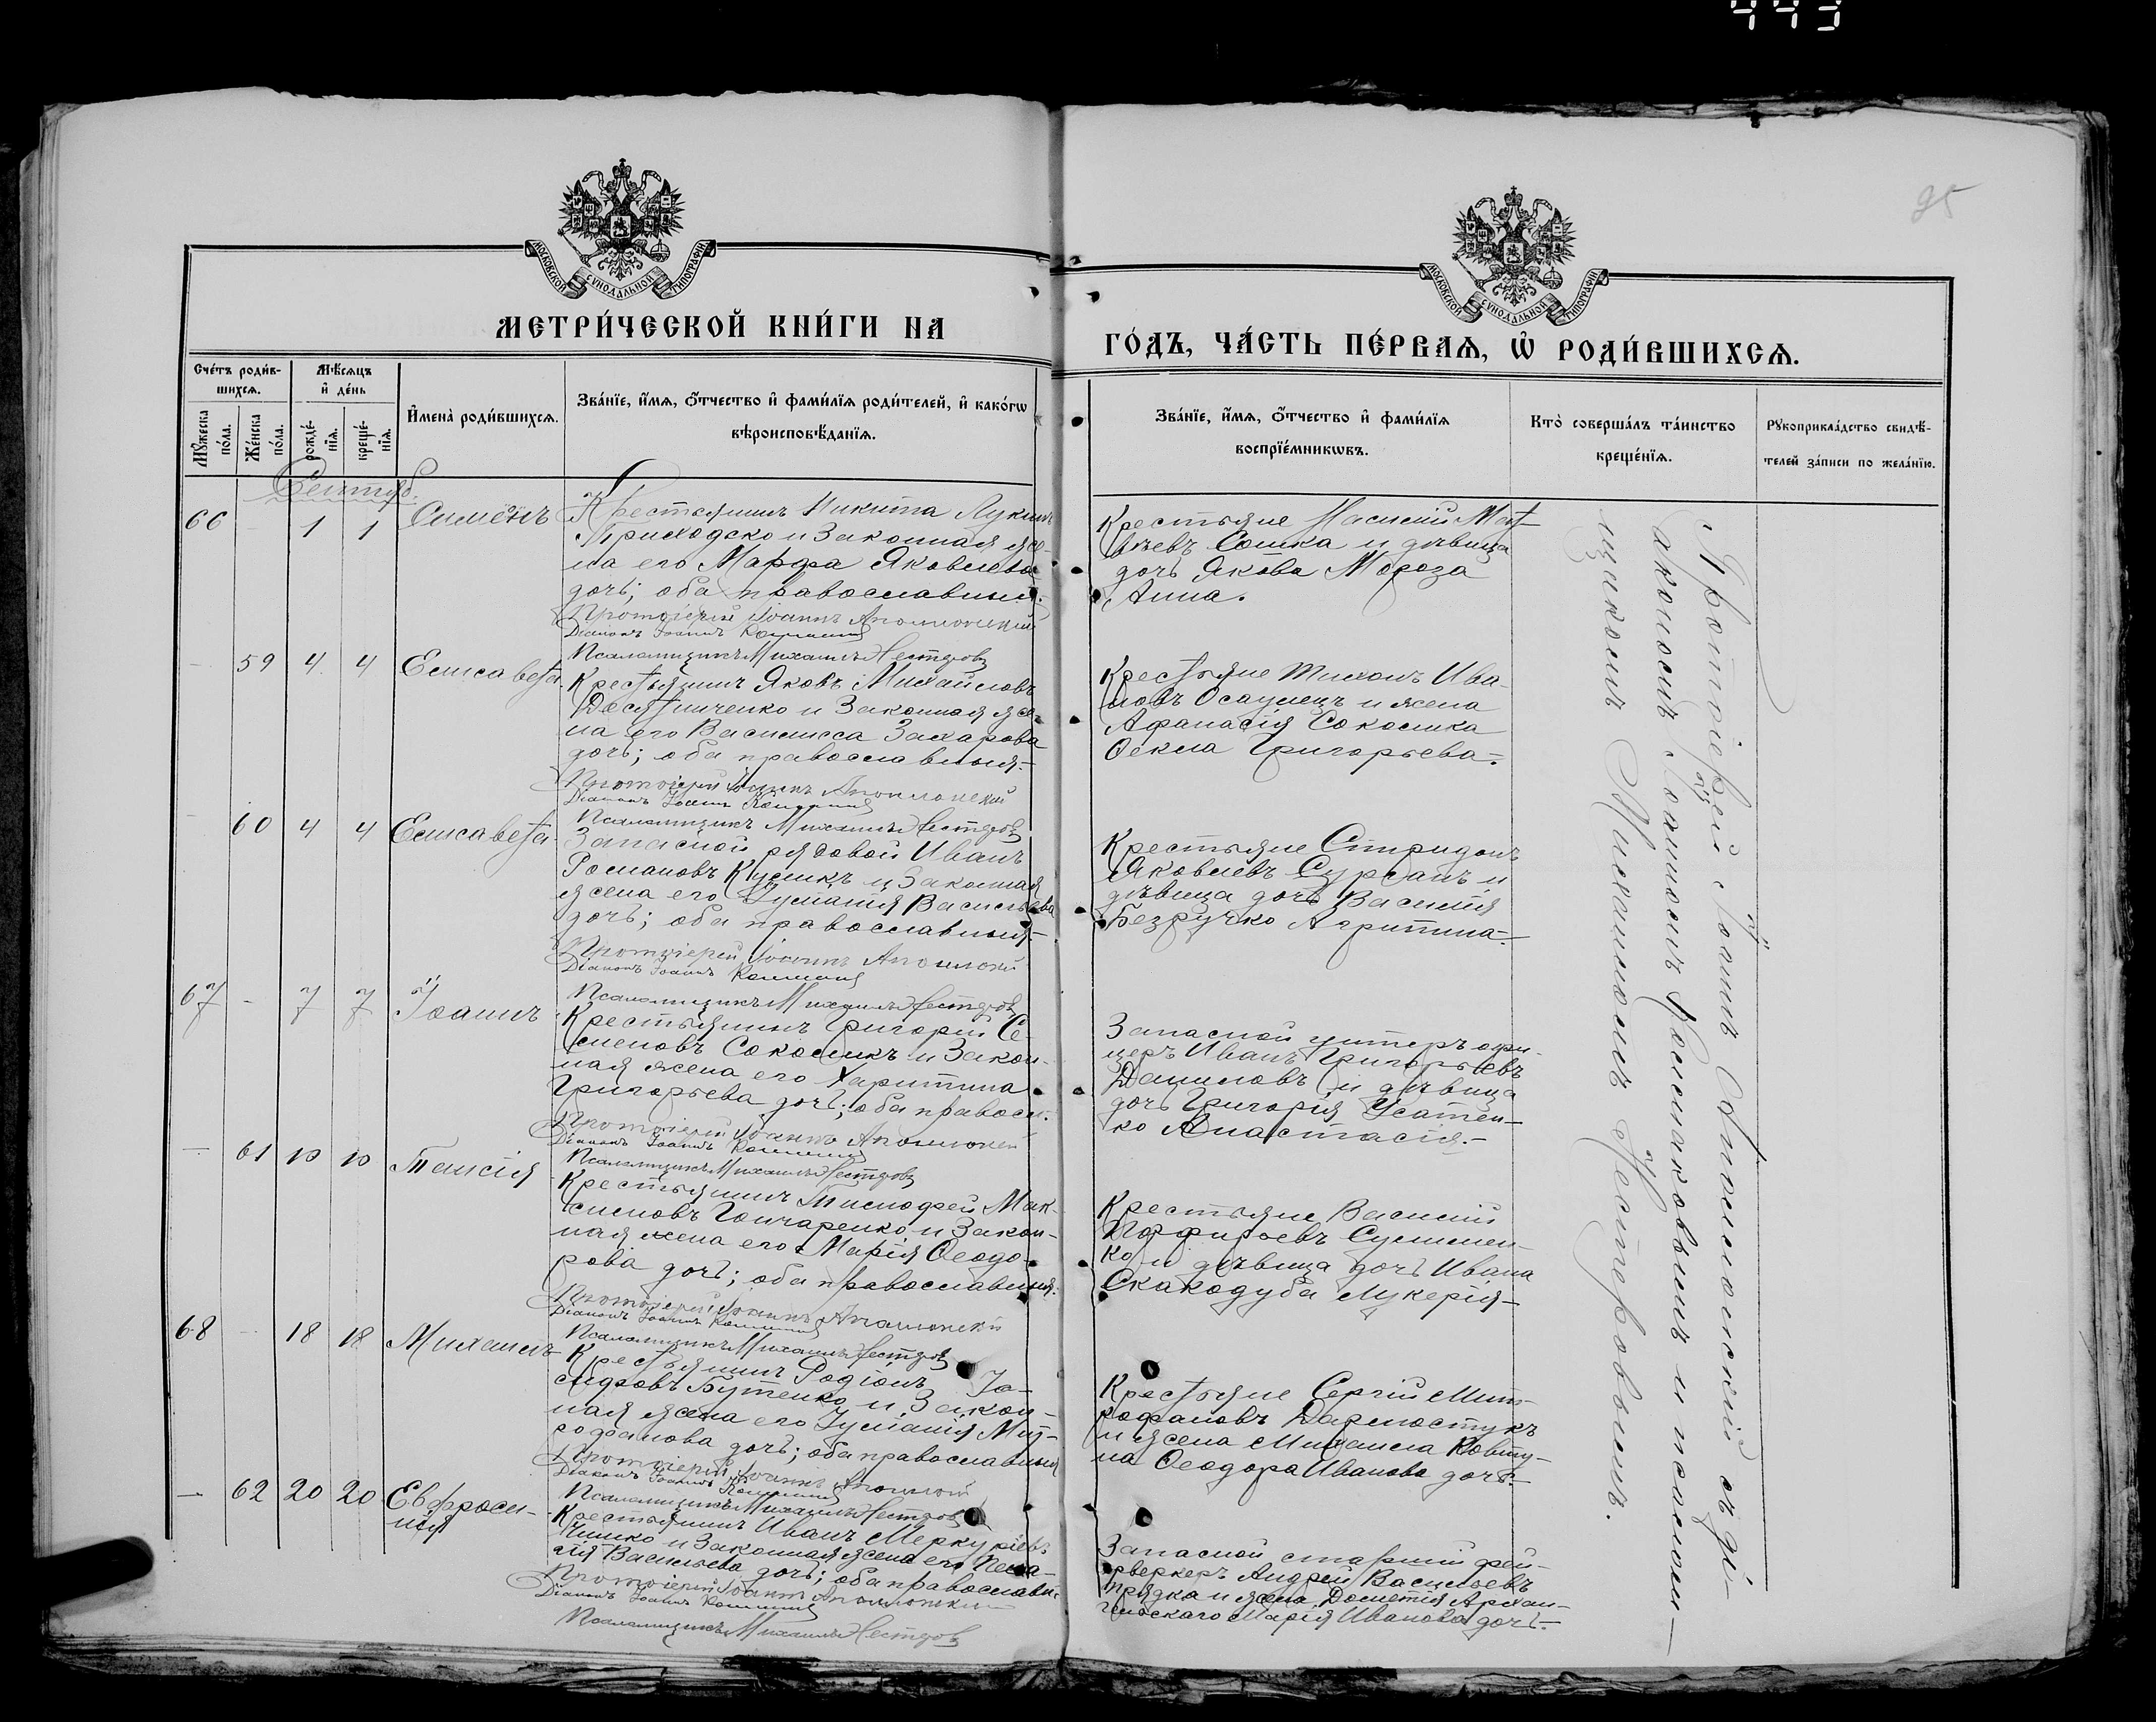 443
95
МОСКОВСКОЙ СѴНОДАЛЬНОЙ ТИПОГРАФІИ
МОСКОВСКОЙ СѴНОДАЛЬНОЙ ТИПОГРАФІИ
МЕТРИ́ЧЕСКОЙ КНИ́ГИ НА
ГО́ДЪ, ЧА́СТЬ ПЕ́РВАѦ, Ѡ҆ РОДИ́ВШИХСѦ.
Сче́тъ роди́в-
шихсѧ.
Мꙋ́жеска
по́ла.
Же́нска
по́ла.
Мѣ́сѧцъ
и҆ де́нь
рожде́-
нїѧ.
креще́-
нїѧ.
И҆мена̀ роди́вшихсѧ.
Зва́нїе, и҆́мѧ, ѻ҆́тчество и҆ фами́лїѧ роди́телей, и҆ како́гѡ
вѣроисповѣ́данїѧ.
Зва́нїе, и҆́мѧ, ѻ҆́тчество и҆ фами́лїѧ
воспрїе́мникѡвъ.
Кто̀ соверша́лъ та́инство
креще́нїѧ.
Рꙋкоприкла́дство свидѣ́-
телей за́писи по жела́нїю.
Сентяб.
66 - 1 1 Симеонъ
Крестьянинъ Никита Лукинъ
Приходско и законная же-
на его Марфа Яковлева
дочь; оба православныя.
Протоіерей Іоаннъ Аполлонскій
Діаконъ Іоаннъ
Псаломщикъ Михаилъ Нестеровъ
Крестьяне Василій Мат
вѣевъ Сошка и дѣвица
дочь Якова Мороза
Анна.
- 59 4 4 Елисавета
Крестьянинъ Яковъ Михайловъ
Десятниченко и законная же-
на его Василисса Захарова
дочь; оба православныя.
Протоіерей Іоаннъ Аполлонскій
Діаконъ Іоаннъ
Псаломщикъ Михаилъ Нестеровъ
Крестьяне Тихонъ Ива-
новъ Осаулецъ и жена
Афанасія Соколика
Ѳекла Григорьева.
- 60 4 4 Елисавета
Запасной рядовой Иванъ
Романовъ Куликъ и законная
жена его Іуліанія Васильева
дочь; оба православныя.
Протоіерей Іоаннъ Аполлонскій
Діаконъ Іоаннъ
Псаломщикъ Михаилъ Нестеровъ
Крестьяне Спиридонъ
Яковлевъ Сурганъ и
дѣвица дочь Василія
Безручко Агрипина.
67 - 7 7 Іоаннъ
Крестьянинъ Григорій Се-
меновъ Соколикъ и закон-
ная жена его Харитина
Григорьева дочь; оба правосл.
Протоіерей Іоаннъ Аполлонскій
Діаконъ Іоаннъ
Псаломщикъ Михаилъ Нестеровъ
Запасной унтеръ офи-
церъ Иванъ Григорьевъ
Даниловъ и дѣвица
дочь Григорія Усатен-
ко Анастасія.-
- 61 10 10 Таисія
Крестьянинъ Тимофей Мак-
симовъ Гончаренко и закон-
ная жена его Марія Ѳеодо-
рова дочь; оба православныя.
Протоіерей Іоаннъ Аполлонскій
Діаконъ Іоаннъ
Псаломщикъ Михаилъ Нестеровъ
Крестьяне Василій
Порфирьевъ Сулимен-
ко и дѣвица дочь Ивана
Скакодуба Лукерія-
68 - 18 18 Михаилъ
Крестьянинъ Родіонъ
Бутенко и закон-
ная жена его Іуліанія Мит-
рофанова дочь; оба православныя
Протоіерей Іоаннъ Аполлонскій
Діаконъ Іоаннъ
Псаломщикъ Михаилъ Нестеровъ
Крестьяне Сергій Мит-
рофановъ Дармостукъ
и жена Михаила Ковту-
на Ѳеодора Иванова дочь.-
- 62 20 20 Евфроси-
нія
Крестьянинъ Иванъ Меркуріевъ
и законная жена его Пела-
гія Васильева дочь; оба православн.
Протоіерей Іоаннъ Аполлонскій
Діаконъ Іоаннъ
Псаломщикъ Михаилъ Нестеровъ
Запасной старшій фей-
ерверкеръ Андрей Васильевъ
Прядка и жена Дометія Архан-
гельскаго Марія Иванова дочь.-
Протоіерей Іоаннъ Аполлонскій съ ді-
акономъ Іоанномъ и псалом-
щикомъ Михаиломъ Нестеровымъ.